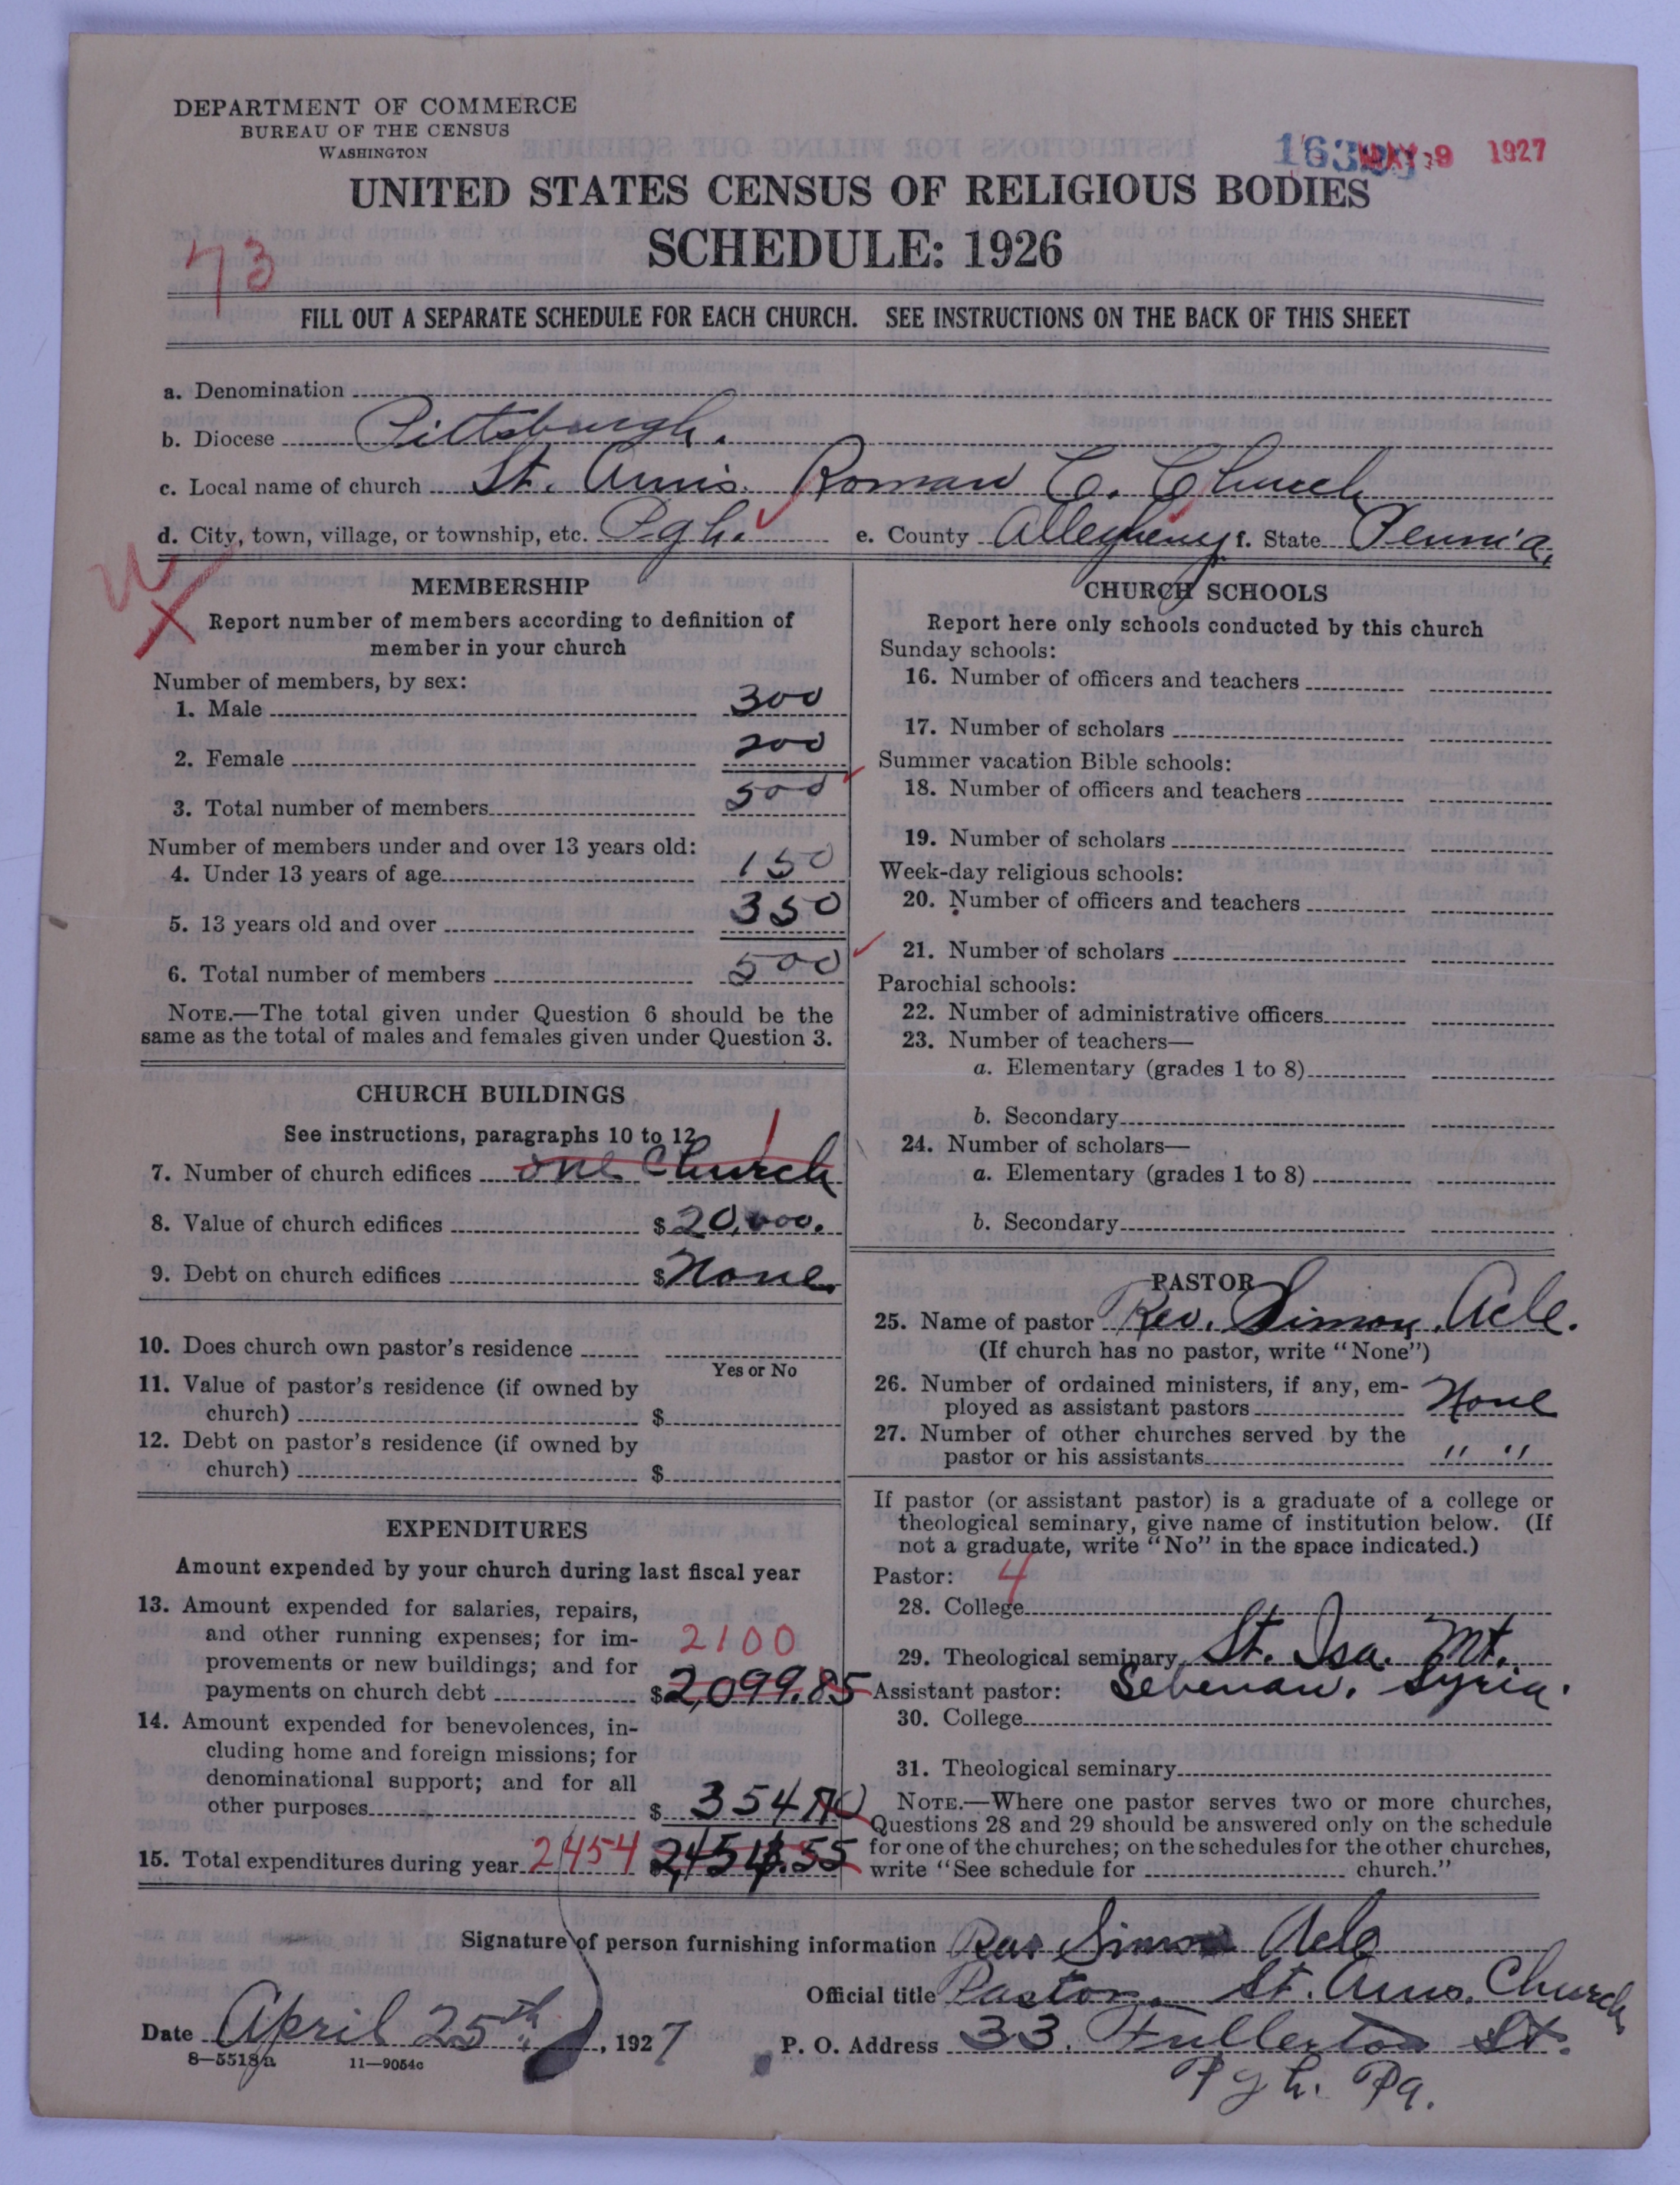 DEPARTMENT OF COMMERCE
BUREAU OF THE CENSUS
WASHINGTON
MAY 9 1927
UNITED STATES CENSUS OF RELIGIOUS BODIES
SCHEDULE: 1926
73
FILL OUT A SEPARATE SCHEDULE FOR EACH CHURCH. SEE INSTRUCTIONS ON THE BACK OF THIS SHEET
a. Denomination
b. Diocese Pittsburgh.
c. Local name of church St. Anns. Roman C. Church
d. City, town, village, or township, etc. Pgh. e. County Allegheny f. State Penn'a.
MEMBERSHIP
Report number of members according to definition of
member in your church
Number of members, by sex:
1. Male 300
2. Female 200
3. Total number of members 500
Number of members under and over 13 years old:
4. Under 13 years of age 150
5. 13 years old and over 350
6. Total number of members 500
NOTE.—The total given under Question 6 should be the
same as the total of males and females given under Question 3.
CHURCH BUILDINGS
See instructions, paragraphs 10 to 12
1
7. Number of church edifices one Church
8. Value of church edifices $20,000.
9. Debt on church edifices $None.
10. Does church own pastor's residence
Yes or No
11. Value of pastor's residence (if owned by
church) $
12. Debt on pastor's residence (if owned by
church) $
EXPENDITURES
Amount expended by your church during last fiscal year
13. Amount expended for salaries, repairs,
and other running expenses; for im-
provements or new buildings; and for 2100
payments on church debt $2,099.85
14. Amount expended for benevolences, in-
cluding home and foreign missions; for
denominational support; and for all
other purposes $ 354.70
15. Total expenditures during year 2454 $2,454.55
CHURCH SCHOOLS
Report here only schools conducted by this church
Sunday schools:
16. Number of officers and teachers
17. Number of scholars
Summer vacation Bible schools:
18. Number of officers and teachers
19. Number of scholars
Week-day religious schools:
20. Number of officers and teachers
21. Number of scholars
Parochial schools:
22. Number of administrative officers
23. Number of teachers—
a. Elementary (grades 1 to 8)
b. Secondary
24. Number of scholars—
a. Elementary (grades 1 to 8)
b. Secondary
PASTOR
25. Name of pastor Rev. Simon Acle.
(If church has no pastor, write "None")
26. Number of ordained ministers, if any, em-
ployed as assistant pastors None
27. Number of other churches served by the
pastor or his assistants " "
If pastor (or assistant pastor) is a graduate of a college or
theological seminary, give name of institution below. (If
not a graduate, write "No" in the space indicated.)
Pastor: 4
28. College
29. Theological seminary St. Isa. Mt.
Assistant pastor: Sebenan. Syria.
30. College
31. Theological seminary
NOTE.—Where one pastor serves two or more churches,
Questions 28 and 29 should be answered only on the schedule
for one of the churches; on the schedules for the other churches,
write "See schedule for church."
Signature of person furnishing information Rev Simon Acle
Official title Pastor. St. Anns. Church
Date April 25th, 1927 P. O. Address 33. Fullerton St.
Pgh. Pa.
8—5518a 11—9054c